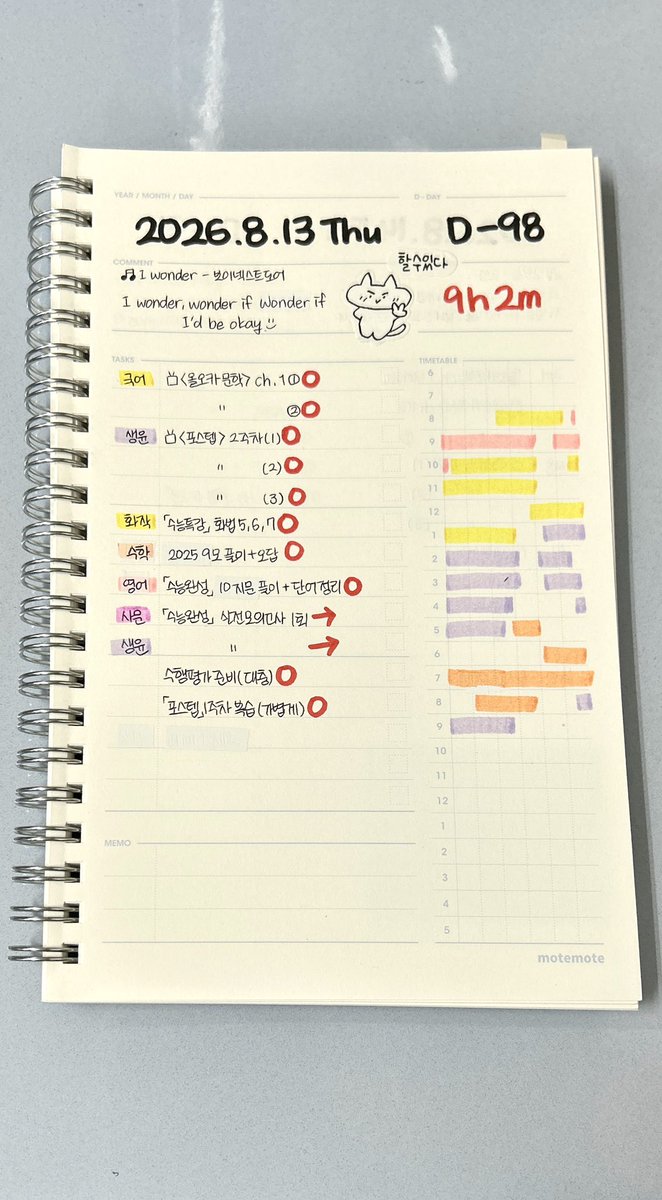 YEAR / MONTH / DAY
D-DAY
2026.8.13 Thu
D-98
COMMENT
I wonder - 보이넥스트도어
I wonder, wonder if wonder if
I'd be okay
할 수 있다
9h 2m
TASKS
TIMETABLE
국어 <올오카 문학> ch.1①
" ②
생윤 <포스텝> 2주차(1)
" (2)
" (3)
화작 「수능특강」 화법 5, 6, 7
수학 2025 9모 풀이+오답
영어 「수능완성」 10지문 풀이 + 단어정리
사문 「수능완성」 실전모의고사 1회 →
생윤 " →
수행평가 준비(대충)
「포스텝」 1주차 복습 (가볍게)
6
7
8
9
10
11
12
1
2
3
4
5
6
7
8
9
10
11
12
1
2
3
4
5
MEMO
motemote